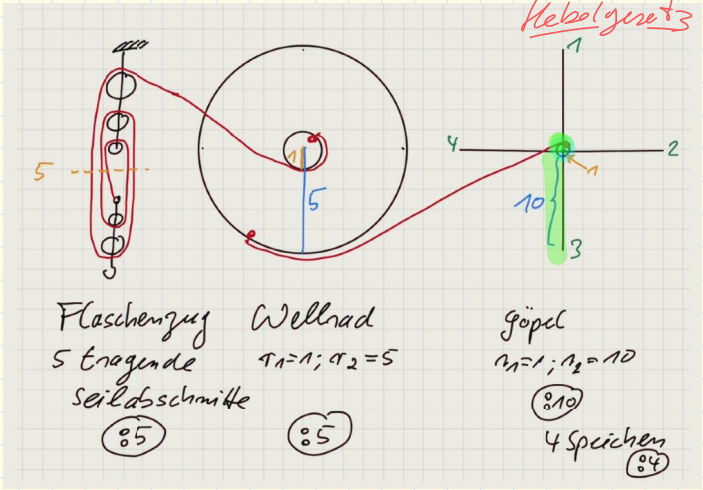 Hebelgesetz
1
4
2
5
1
5
1
10
3
Flaschenzug
5 tragende
Seilabschnitte
:5
Wellrad
r1=1; r2=5
:5
Göpel
r1=1; r2=10
:10
4 Speichen
:4